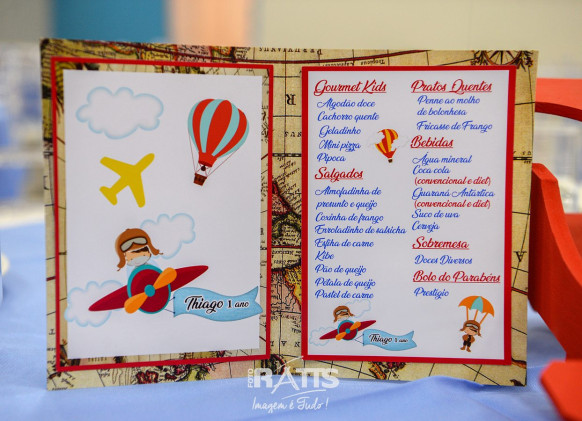 Thiago 1 ano
Gourmet Kids
Algodão doce
Cachorro quente
Geladinho
Mini pizza
Pipoca
Salgados
Almofadinha de
presunto e queijo
Coxinha de frango
Enroladinho de salsicha
Esfiha de carne
Kibe
Pão de queijo
Pétala de queijo
Pastel de carne
Thiago 1 ano
Pratos Quentes
Penne ao molho
de bolonhesa
Fricasse de Frango
Bebidas
Água mineral
Coca cola
(convencional e diet)
Guaraná Antártica
(convencional e diet)
Suco de uva
Cerveja
Sobremesa
Doces Diversos
Bolo do Parabéns
Prestígio
FOTO RATTS
Imagem é Tudo!